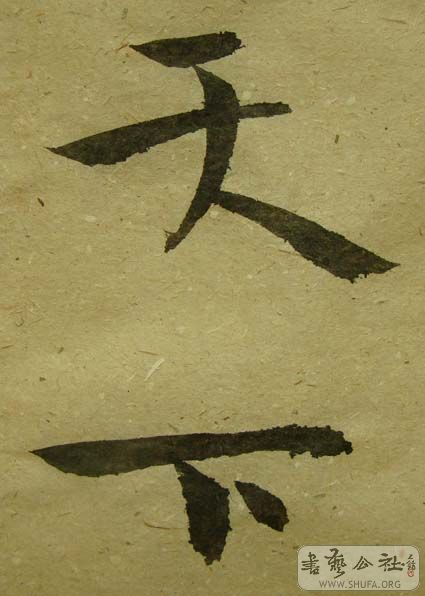 天
下
書藝公社
WWW.SHUFA.ORG